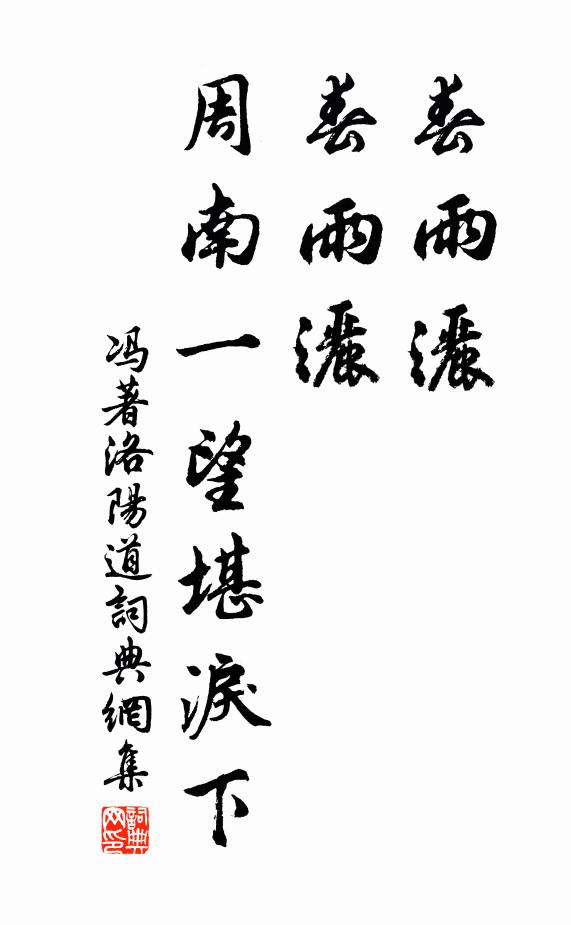 春雨灑
春雨灑
周南一望堪淚下
冯著洛陽道詞典網集
詞典
网印